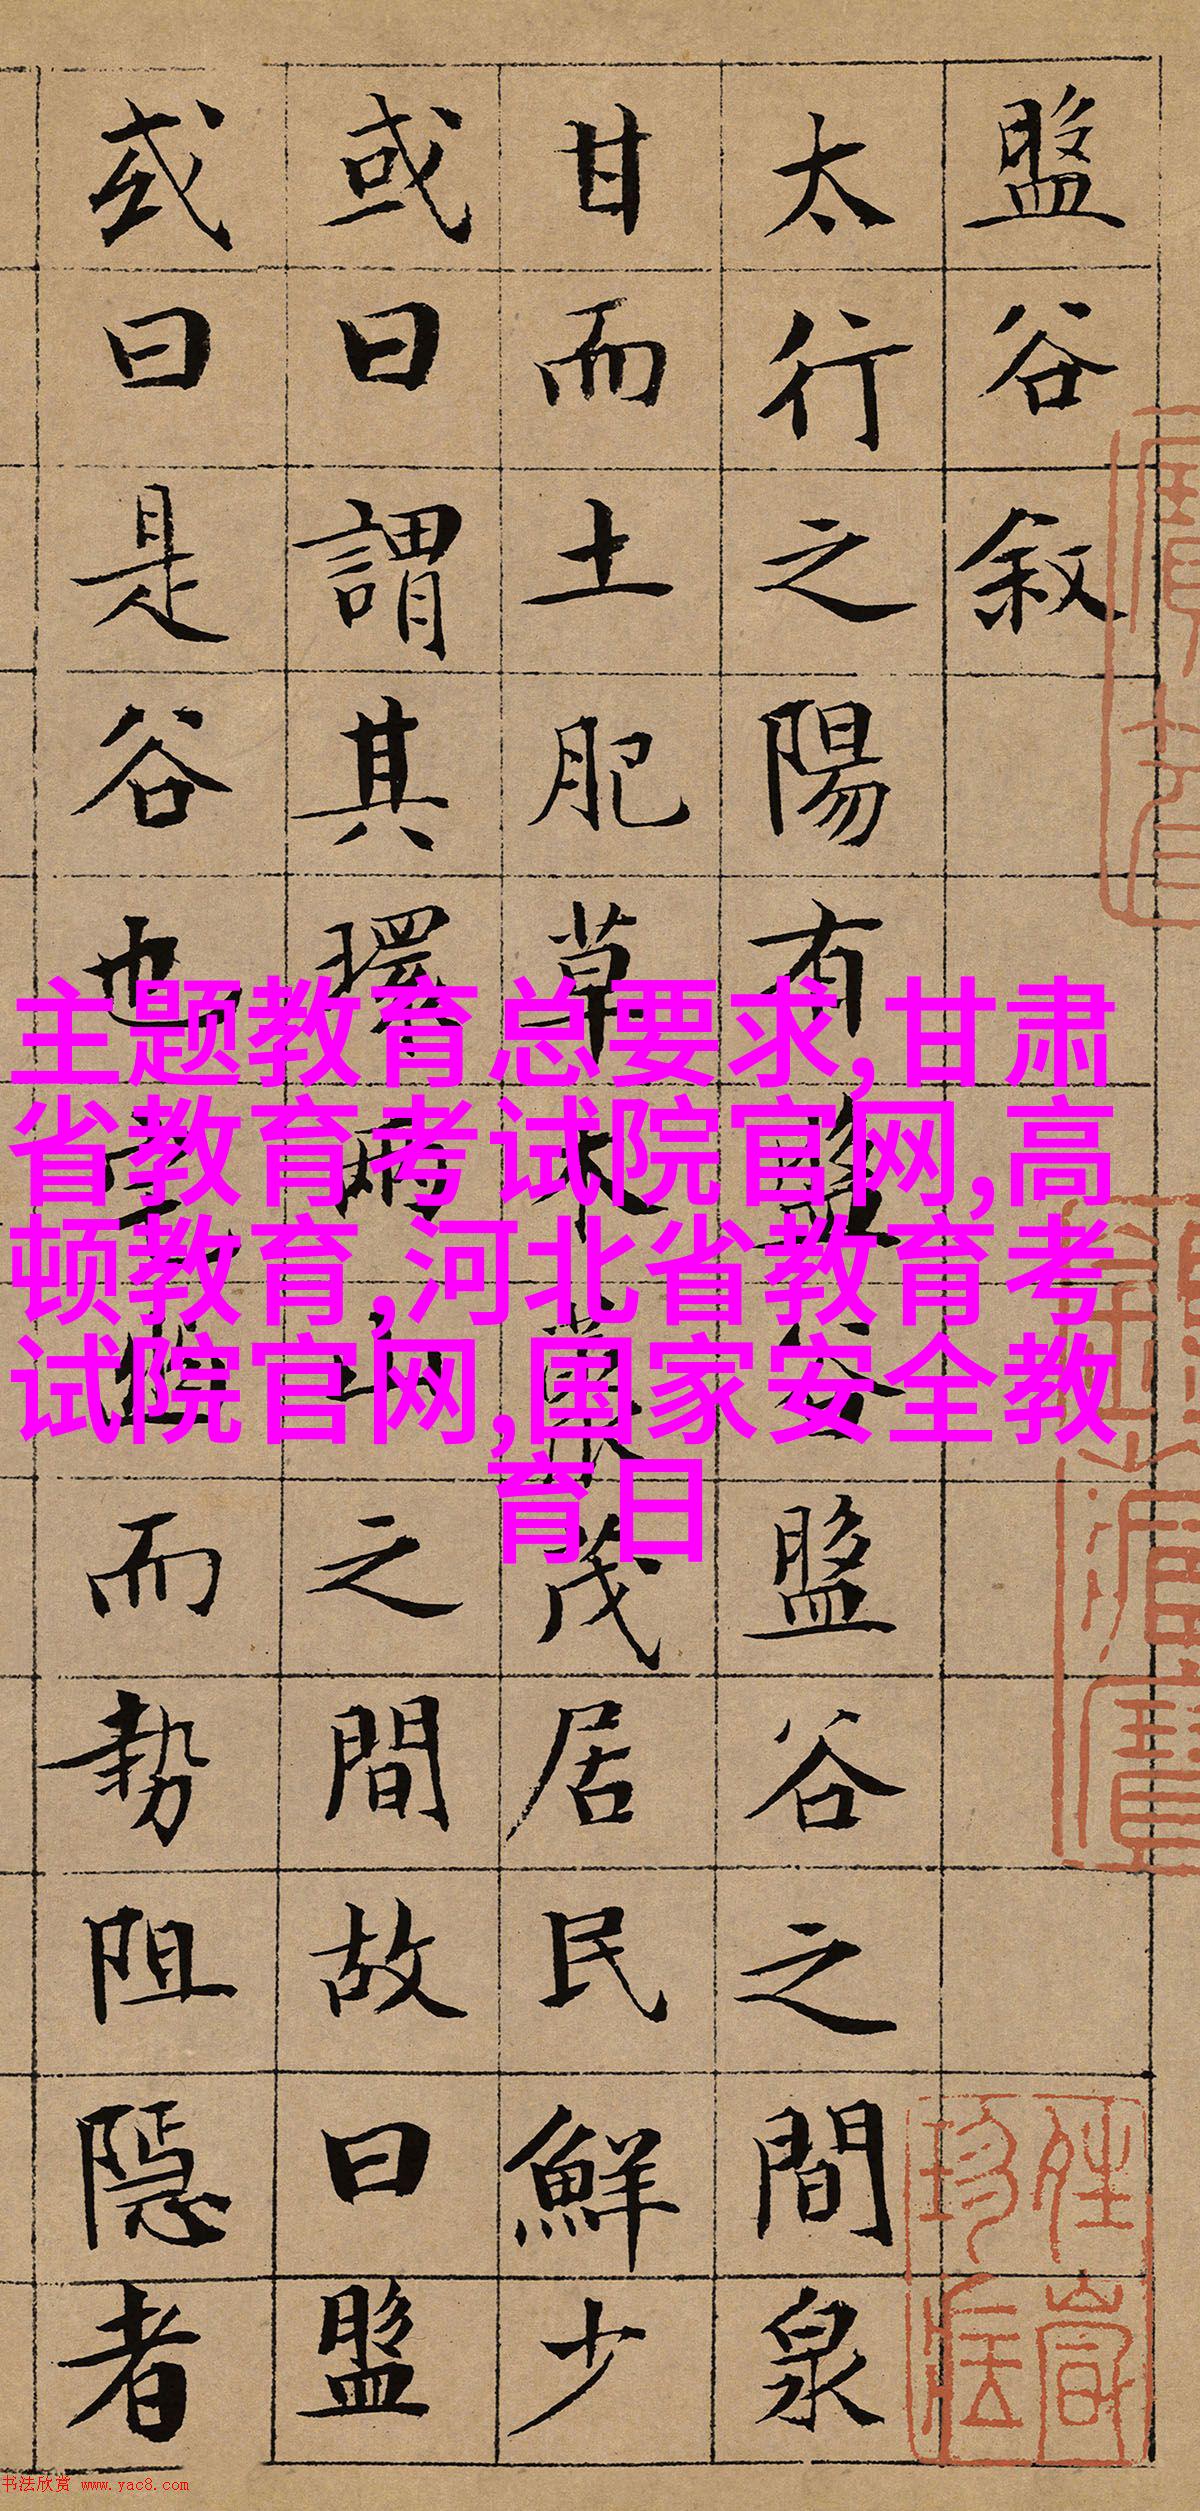 盤谷叙
太行之陽有盤谷盤谷之間泉
甘而土肥草木藂茂居民鮮少
或曰謂其環兩山之間故曰盤
或曰是谷也宅幽而勢阻隱者
主题教育总要求,甘肃
省教育考试院官网,高
顿教育,河北省教育考
试院官网,国家安全教
育日
书法欣赏 www.yac8.com